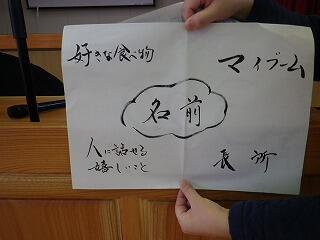 好きな食べ物
マイブーム
名前
人に話せる
嬉しいこと
長所